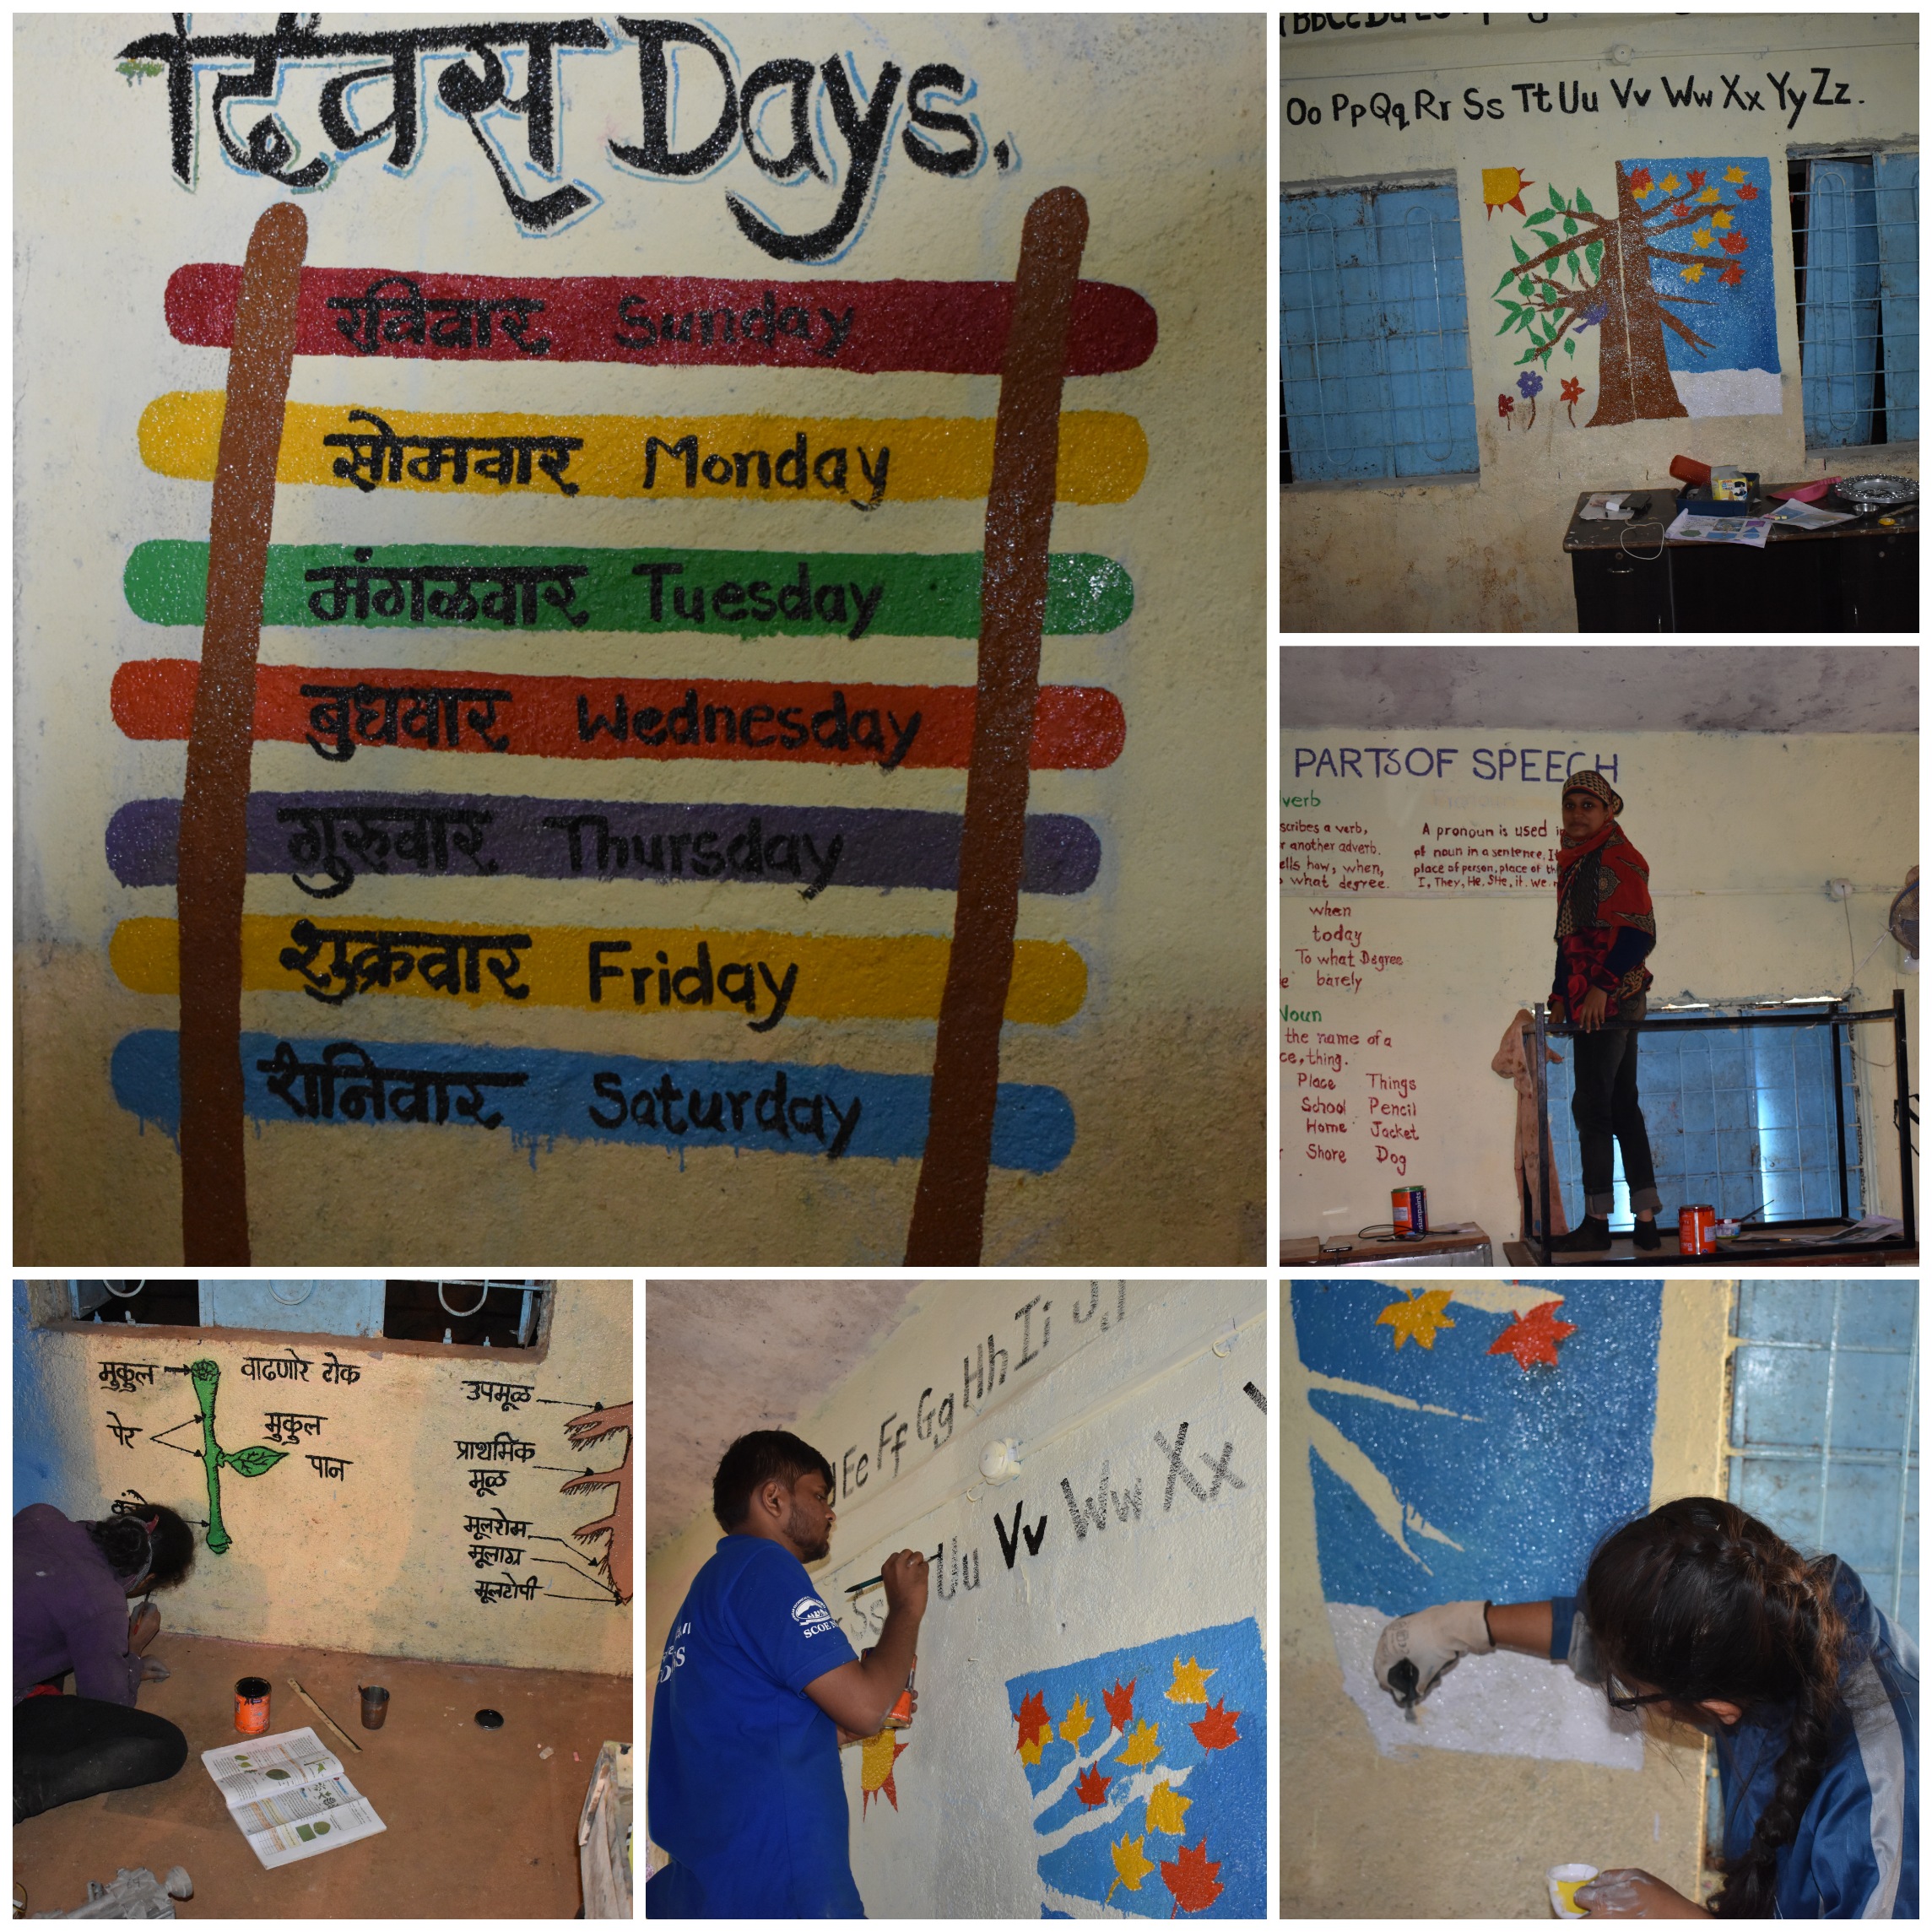 दिवस Days.
रविवार Sunday
सोमवार Monday
मंगळवार Tuesday
बुधवार Wednesday
गुरुवार Thursday
शुक्रवार Friday
शनिवार Saturday
Oo Pp Qq Rr Ss Tt Uu Vv Ww Xx Yy Zz.
PARTS OF SPEECH
verb
scribes a verb,
another adverb.
ells how, when,
what degree.
A pronoun is used
of noun in a sentence. It
place of person, place of th
I, They, He, She, it. we
when
today
To what Degree
barely
Noun
the name of a
ce, thing.
Place Things
School Pencil
Home Jacket
Shore Dog
asianpaints
मुकुल
वाढणारे टोक
पेर
मुकुल
पान
उपमूळ
प्राथमिक
मूळ
मूलरोम
मूलाग्र
मूलटोपी
Ee Ff Gg Hh Ii Jj
Ss Uu Vv Ww Xx
SCOE